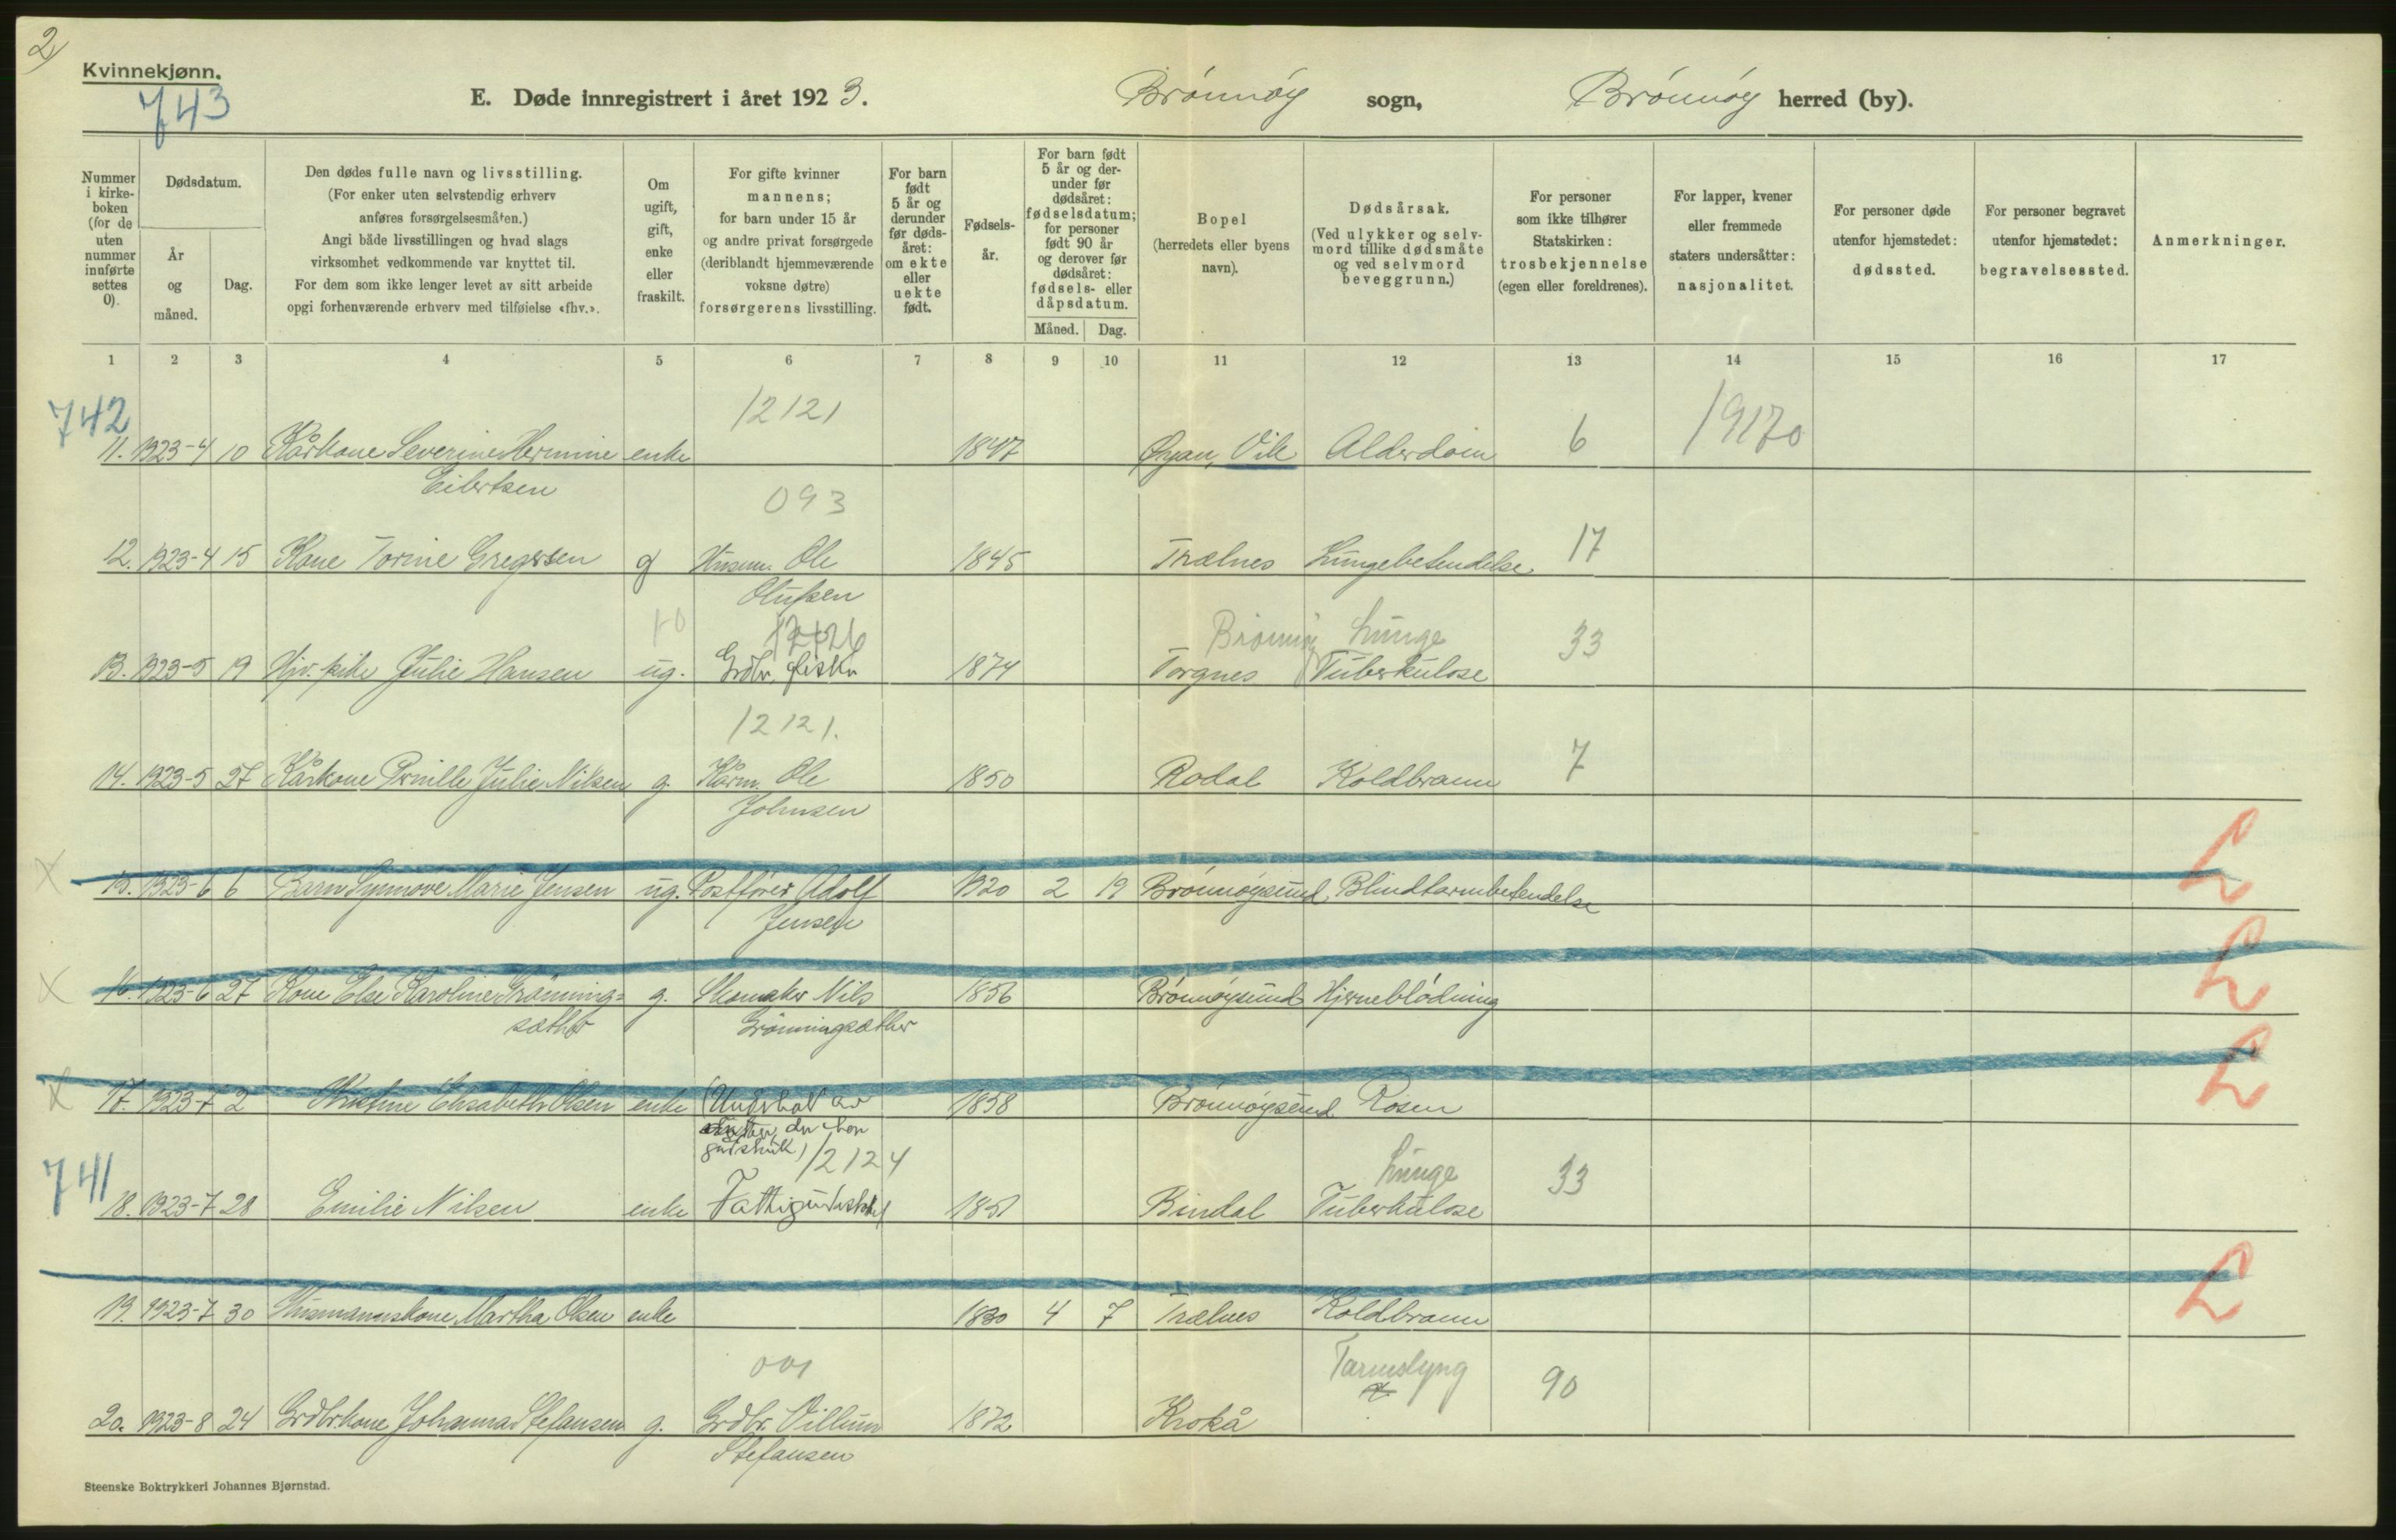 2)
Kvinnekjønn.
743
E. Døde innregistrert i året 1923. Brønnøy sogn, Brønnøy herred (by).
Nummer i kirke-boken (for de uten nummer innførte settes 0).
Dødsdatum.
År og måned.
Dag.
Den dødes fulle navn og livsstilling.
(For enker uten selvstendig erhverv
anføres forsørgelsesmåten.)
Angi både livsstillingen og hvad slags
virksomhet vedkommende var knyttet til.
For dem som ikke lenger levet av sitt arbeide
opgi forhenværende erhverv med tilføielse «fhv.».
Om ugift, gift, enke eller fraskilt.
For gifte kvinner
mannens;
for barn under 15 år
og andre privat forsørgede
(deriblandt hjemmeværende
voksne døtre)
forsørgerens livsstilling.
For barn født 5 år og derunder før døds-året: om ekte eller uekte født.
Fødsels-år.
For barn født 5 år og der-under før dødsåret: fødselsdatum; for personer født 90 år og derover før dødsåret: fødsels- eller dåpsdatum.
Måned. Dag.
Bopel
(herredets eller byens
navn).
Dødsårsak.
(Ved ulykker og selv-
mord tillike dødsmåte
og ved selvmord
beveggrunn.)
For personer
som ikke tilhører
Statskirken:
trosbekjennelse
(egen eller foreldrenes).
For lapper, kvener
eller fremmede
staters undersåtter:
nasjonalitet.
For personer døde
utenfor hjemstedet:
dødssted.
For personer begravet
utenfor hjemstedet:
begravelsessted.
Anmerkninger.
1 2 3 4 5 6 7 8 9 10 11 12 13 14 15 16 17
742 12121
11. 1923-4 10 Kårkone Severine Hermine enke 1847 Øyan, Vik Alderdom 6 19170
Eilertsen
093
12. 1923-4 15 Kone Torine Gregersen g Husm. Ole 1845 Trælnes Lungebetendelse 17
Olufsen
10 12126 Brønnøy Lunge
13. 1923-5 19 Hjv. pike Julie Hansen ug. Grdbr, fisker 1874 Torgnes Tuberkulose 33
12121.
14. 1923-5 27 Kårkone Pernille Julie Nilsen g. Kårm. Ole 1850 Rodal Koldbrann 7
Johnsen
X 15. 1923-6 6 Barn Synnøve Marie Jensen ug. Postfører Adolf 1920 2 19 Brønnøysund Blindtarmbetendelse L
Jensen
X 16. 1923-6 27 Kone Else Karoline Grønning= g. Skomaker Nils 1856 Brønnøysund Hjerneblødning L
sæther Grønningsæther
X 17. 1923-7 2 Kristine Elisabeth Olsen enke (Underhol av 1858 Brønnøysund Rosen L
12124
741 Lunge
18. 1923-7 28 Emilie Nilsen enke Fattigunderstøttet 1851 Bindal Tuberkulose 33
19. 1923-7 30 Husmannskone Martha Olsen enke 1830 4 7 Trælnes Koldbrann L
001 Tarmslyng
20. 1923-8 24 Grdbrkone Johanna Stefansen g. Grdbr. Villum 1872 Krokå 90
Stefansen
Steenske Boktrykkeri Johannes Bjørnstad.